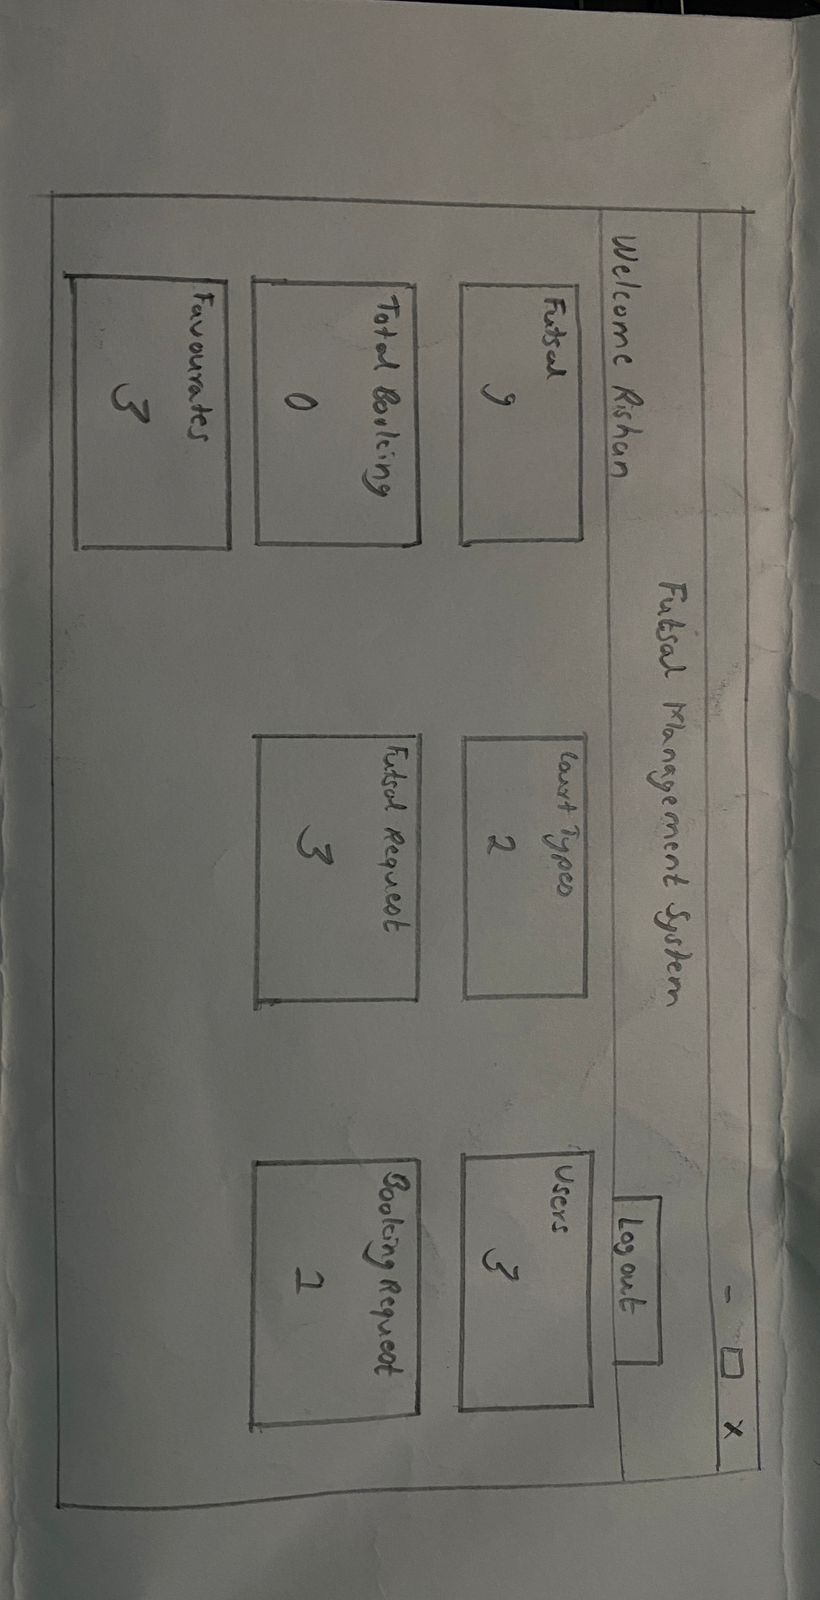 - □ X
Futsal Management System
Welcome Rishan
Log out
Futsal
9
Court Types
2
Users
3
Total Booking
0
Futsal Request
3
Booking Request
1
Favourates
3